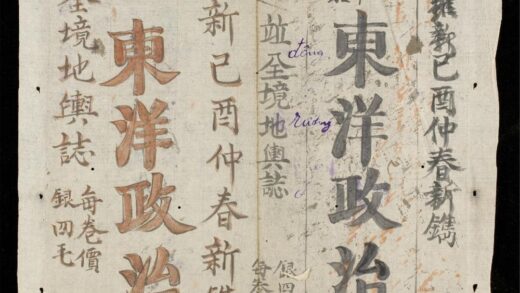 維新己酉仲春新鐫
東洋政治
並全境地輿誌
đông
銀四
每卷
新己酉仲春新鐫
東洋政治
全境地輿誌
每卷價
銀四毛